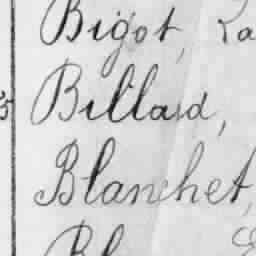 Bigot,
Billard,
Blanchet,